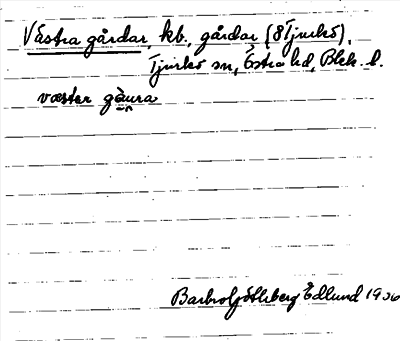 Västra gårdar, kb., gårdar (8 Tjurkö),
Tjurkö sn, Östra hd, Blek. l.
væster gå̀u̯ra
Barbro Götlberg Edlund 1936